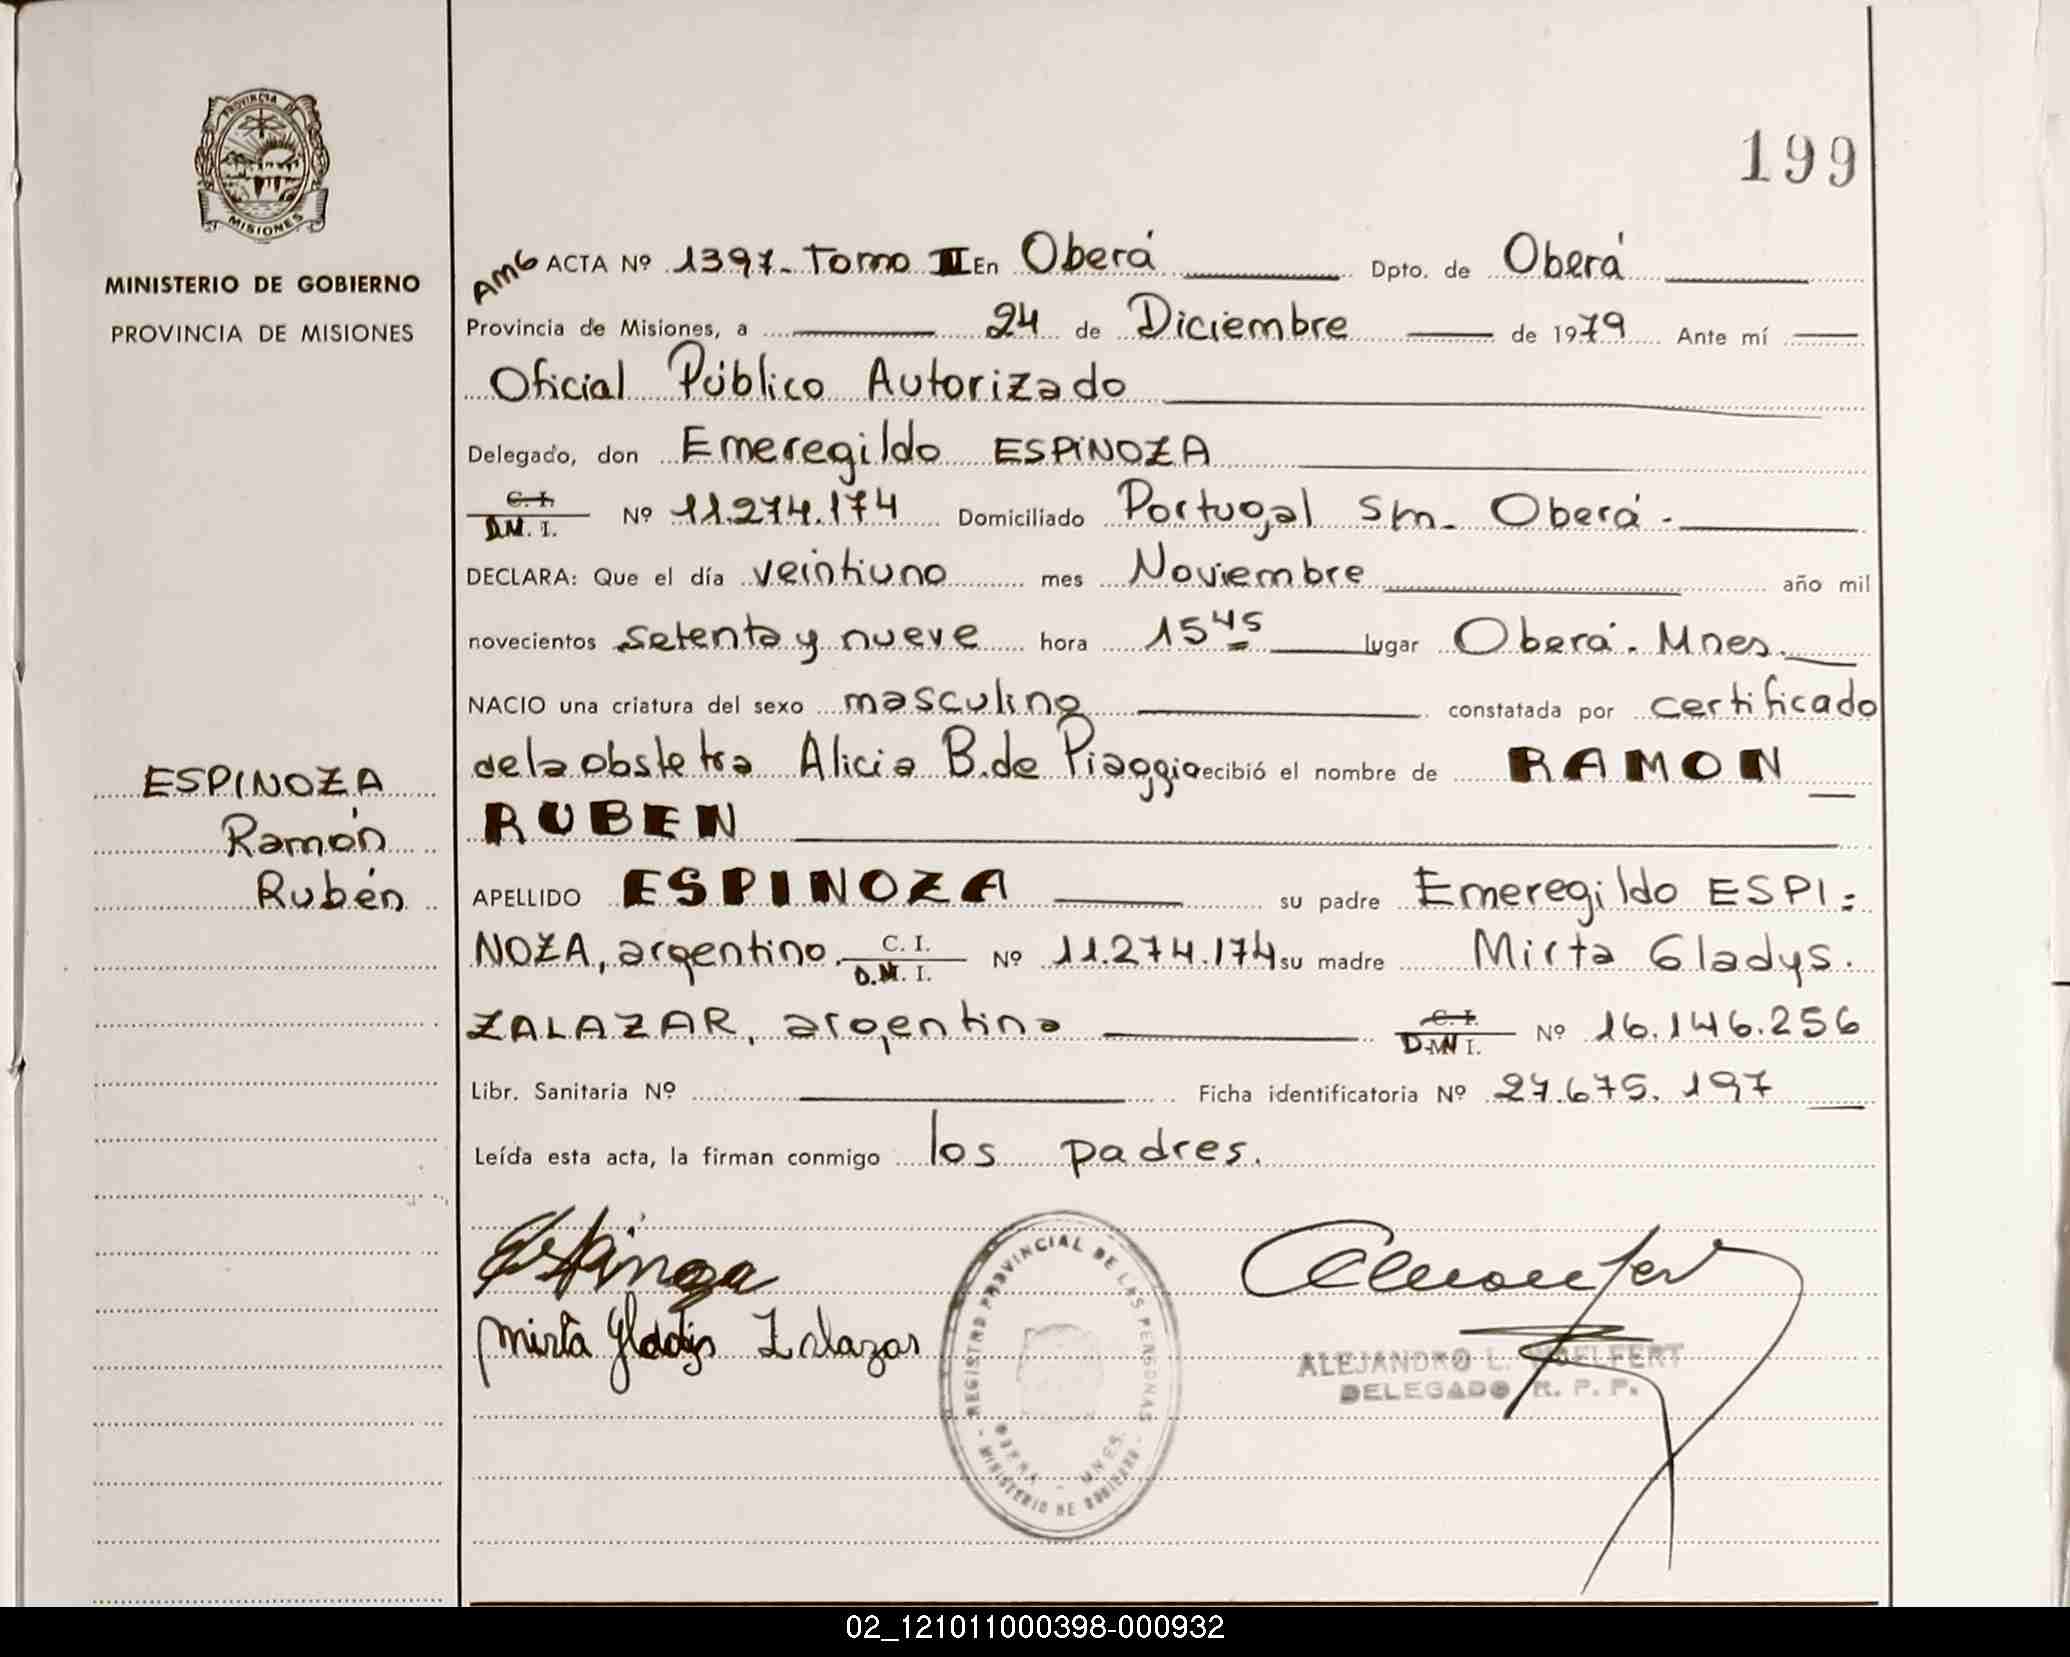 PROVINCIA DE
MISIONES
MINISTERIO DE GOBIERNO
PROVINCIA DE MISIONES
199
AMG ACTA Nº 1397. Tomo II En Oberá Dpto. de Oberá
Provincia de Misiones, a 24 de Diciembre de 1979 Ante mí
Oficial Público Autorizado
Delegado, don Emeregildo ESPINOZA
C. I.
D.N. I. Nº 11.274.174 Domiciliado Portugal S/n. Oberá.
DECLARA: Que el día veintiuno mes Noviembre año mil
novecientos setenta y nueve hora 15 45 lugar Oberá. Mnes.
NACIO una criatura del sexo masculino constatada por certificado
de la obstetra Alicia B. de Piaggio recibió el nombre de RAMON
RUBEN
ESPINOZA
Ramón
Rubén
APELLIDO ESPINOZA su padre Emeregildo ESPI=
NOZA, argentino. C. I.
D.N. I. Nº 11.274.174 su madre Mirta Gladys.
ZALAZAR, argentina C. I.
D.N I. Nº 16.146.256
Libr. Sanitaria Nº Ficha identificatoria Nº 27.675.197
Leída esta acta, la firman conmigo los padres.
Espinoza
Mirta Gladys Zalazar
REGISTRO PROVINCIAL DE LAS PERSONAS
OBERA - MNES.
- MINISTERIO DE GOBIERNO -
ALEJANDRO L.
DELEGADO R. P. P.
02_121011000398-000932